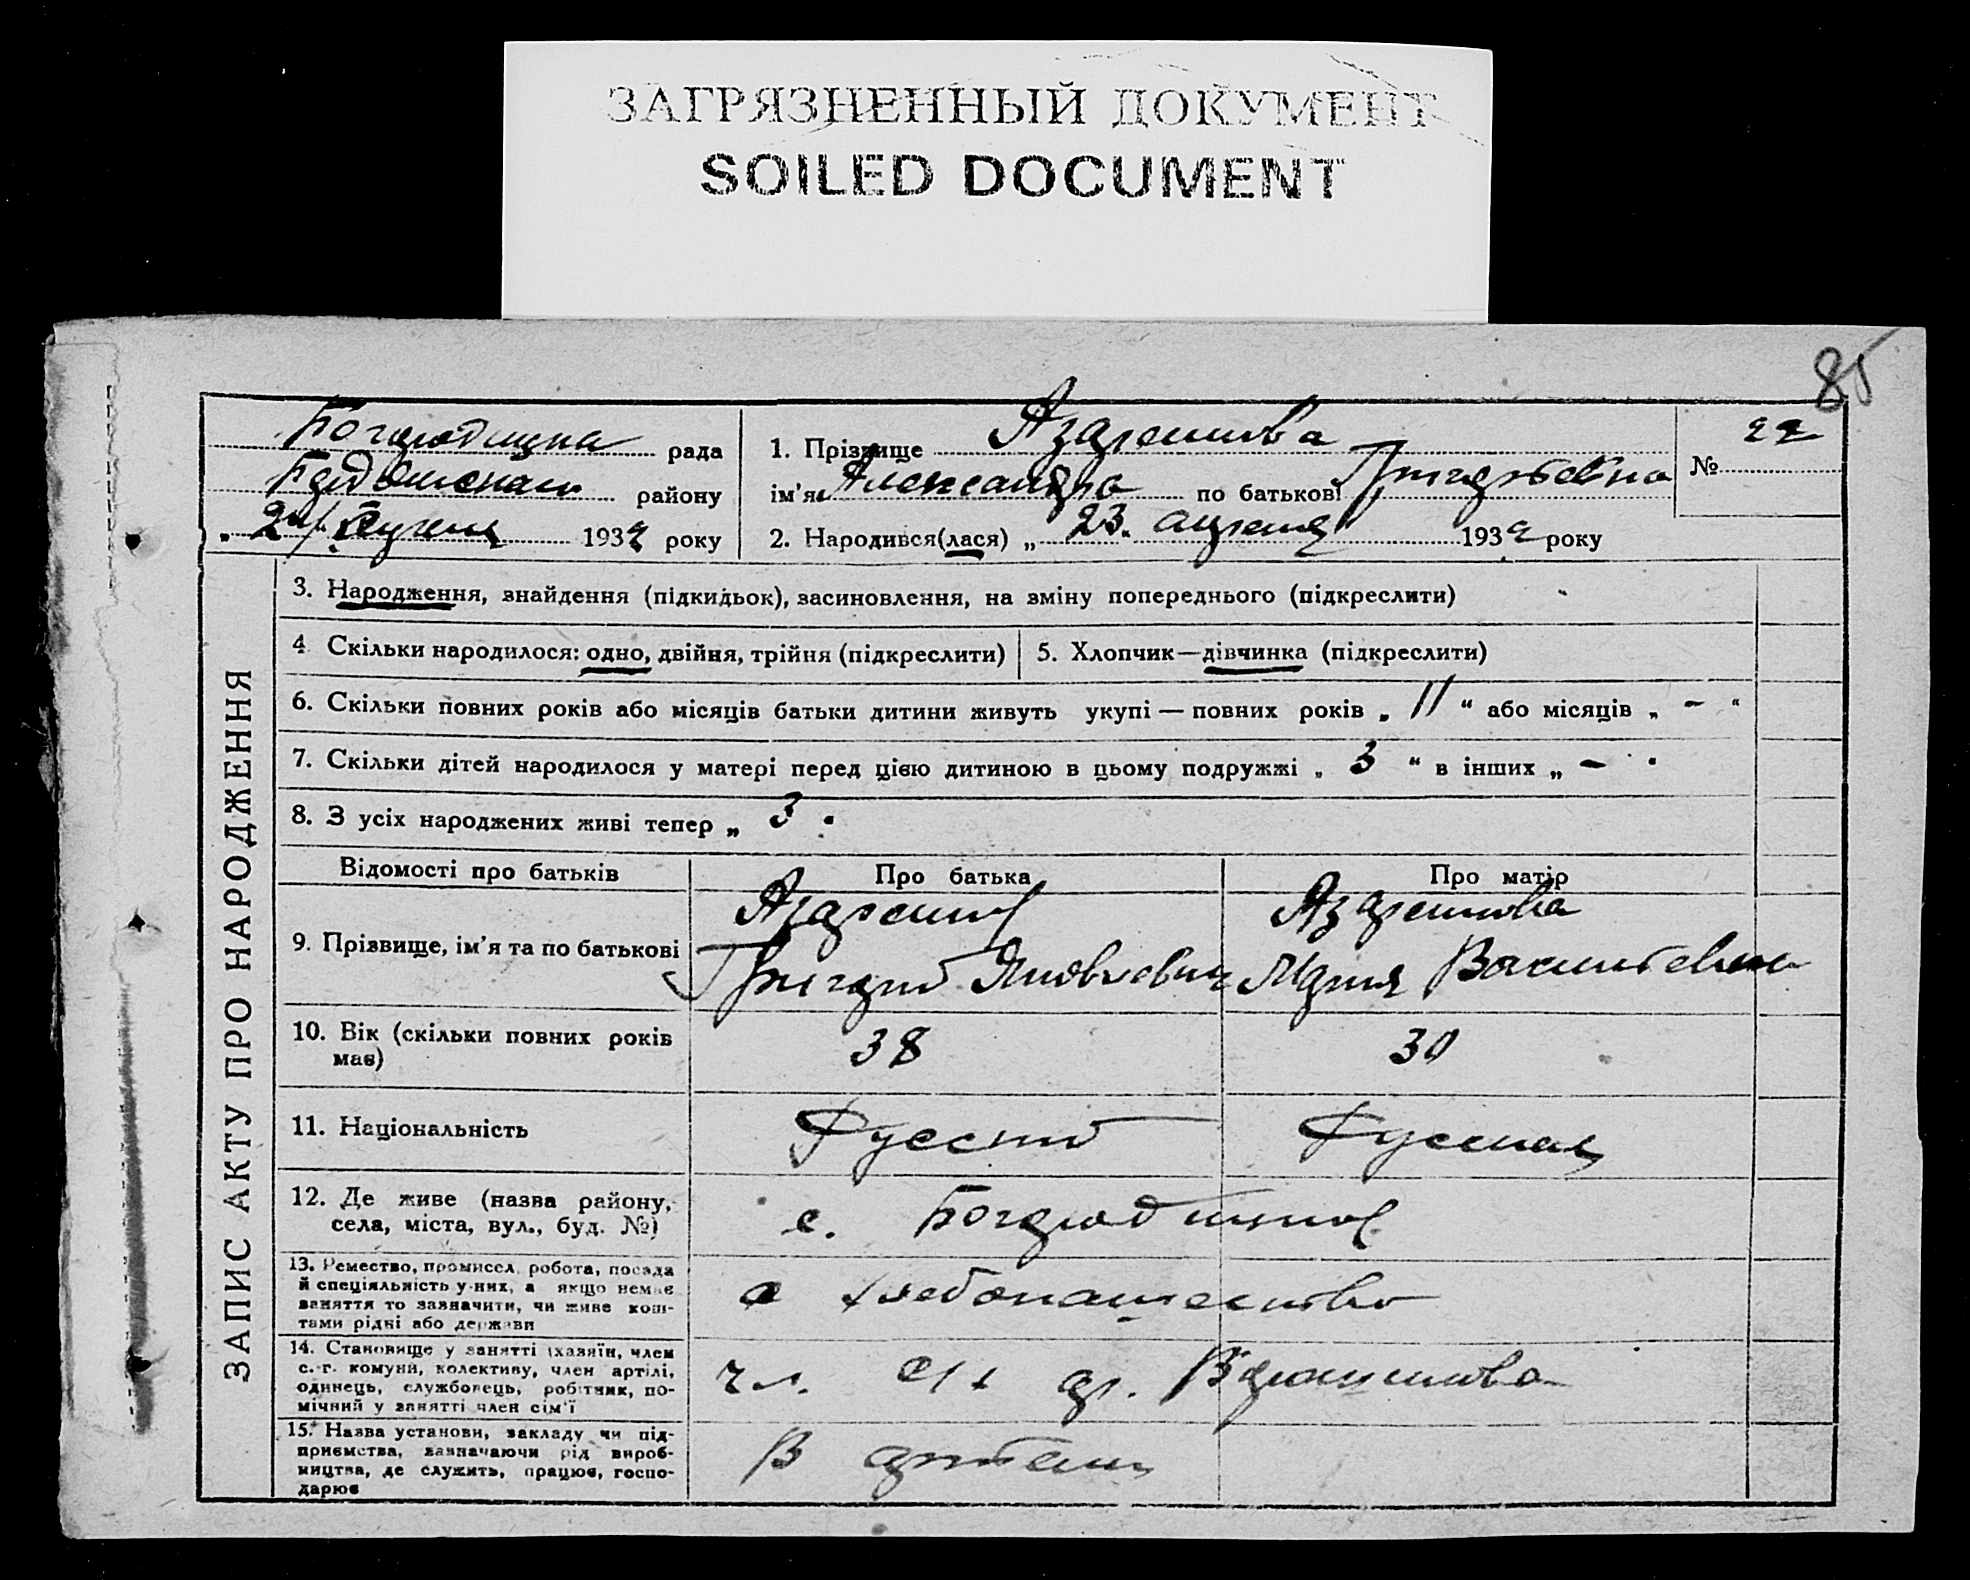 ЗАГРЯЗНЕННЫЙ ДОКУМЕНТ
SOILED DOCUMENT
85
рада
району
24 193 року
1. Прізвище Азаренкова
ім'я Александра по батькові Григорьевна
2. Народився(лася) „ 23. апреля 193 року
№ 22
ЗАПИС АКТУ ПРО НАРОДЖЕННЯ
3. Народження, знайдення (підкидьок), засиновлення, на зміну попереднього (підкреслити)
4 Скільки народилося: одно, двійня, трійня (підкреслити) 5. Хлопчик—дівчинка (підкреслити)
6. Скільки повних років або місяців батьки дитини живуть укупі — повних років „ 11 “ або місяців „ - “
7. Скільки дітей народилося у матері перед цією дитиною в цьому подружжі „ 3 “ в інших „ -
8. З усіх народжених живі тепер „ 3
Відомості про батьків Про батька Про матір
9. Прізвище, ім'я та по батькові
Азаренков Азаренкова
Григорий Яковлевич Мария Васильевна
10. Вік (скільки повних років має) 38 30
11. Національність Русский Русская
12. Де живе (назва району,
села, міста, вул., буд. №)
с.
13. Ремество, промисел, робота, посада
й спеціяльність у них, а якщо немає
заняття то зазначити, чи живе кош-
тами рідні або держави
хлебопашество
14. Становище у занятті (хазяїн, член
с.-г. комуни, колективу, член артілі,
одинець, службовець, робітник, по-
мічний у занятті член сім'ї
чл. с/х ар. Ворошилова
15. Назва установи, закладу чи під-
приємства, зазначаючи рід вироб-
ництва, де служить, працює, госпо-
дарює
В артели